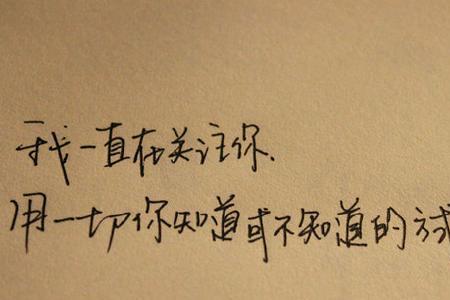 我一直在关注你.
用一切你知道或不知道的方式